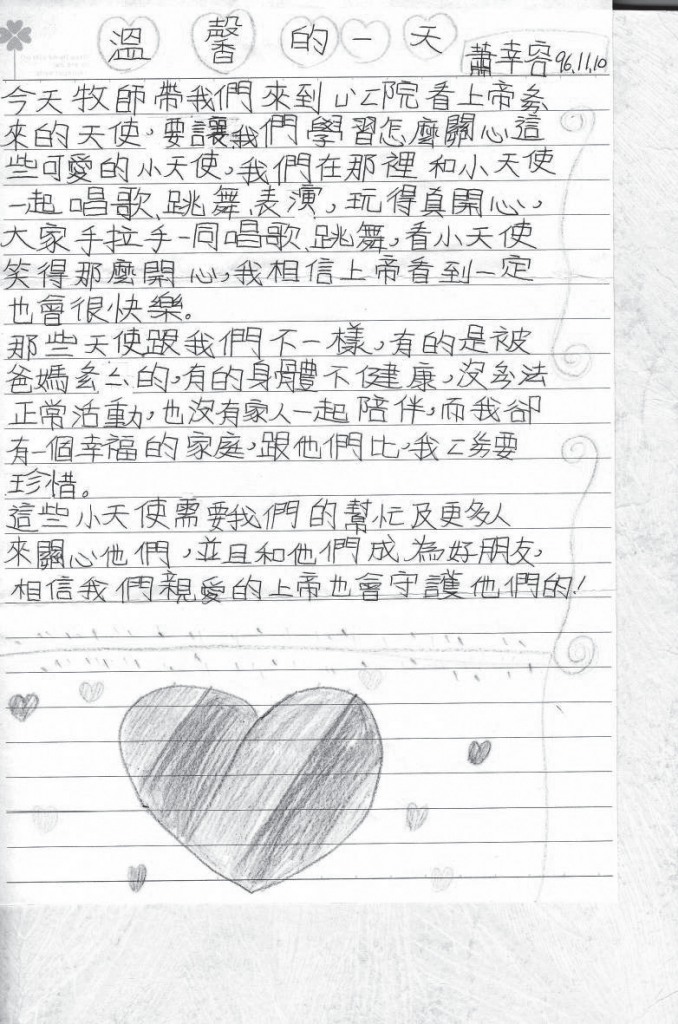 溫馨的一天
蕭幸容 96.11.10
今天牧師帶我們來到 院看上帝
來的天使,要讓我們學習怎麼關心這
些可愛的小天使,我們在那裡和小天使
一起唱歌、跳舞、表演,玩得真開心,
大家手拉手一同唱歌、跳舞,看小天使
笑得那麼開心,我相信上帝看到一定
也會很快樂。
那些天使跟我們不一樣,有的是被
爸媽 的,有的身體不健康,沒 法
正常活動,也沒有家人一起陪伴,而我卻
有一個幸福的家庭,跟他們比,我 要
珍惜。
這些小天使需要我們的幫忙及更多人
來關心他們,並且和他們成為好朋友,
相信我們親愛的上帝也會守護他們的!